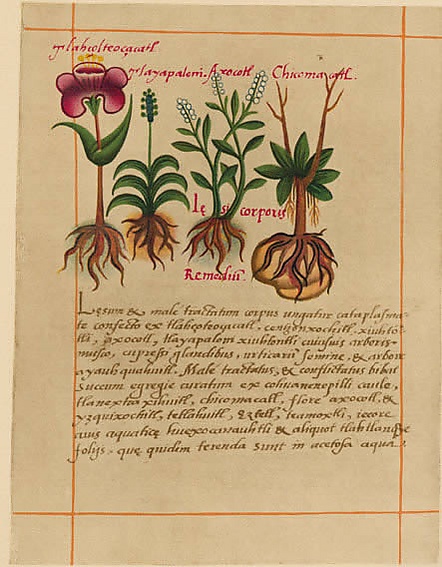 Tlahcolteoçacatl.
Tlayapaloni. Axocotl. Chicomacatl.
Lę si corporis
Remediũ.
Lesum & male tractatum corpus ungatur cataplasma-
te confecto ex tlalṽepteoçacatl, centzonxochitl, xiuhto
tli, axocotl, tlayapaloni xiuhtontli, cuiusuis arboris
musco, cupressi glandibus, urticarū semine, & arbore
ayauhquahuitl. Male tractatus, & conflictatus bibat
succum egregie curatum ex cohuanenepilli caule,
tlanextia xihuitl, chicomacatl, flore axocotl, &
yzquixochitl, tetlahuitl, eztetl, teamoxtli, iecore
auis aquaticę huexocanauhtli & aliquot tlahtlanque
folijs, quę quidem terenda sunt in acetosa aqua